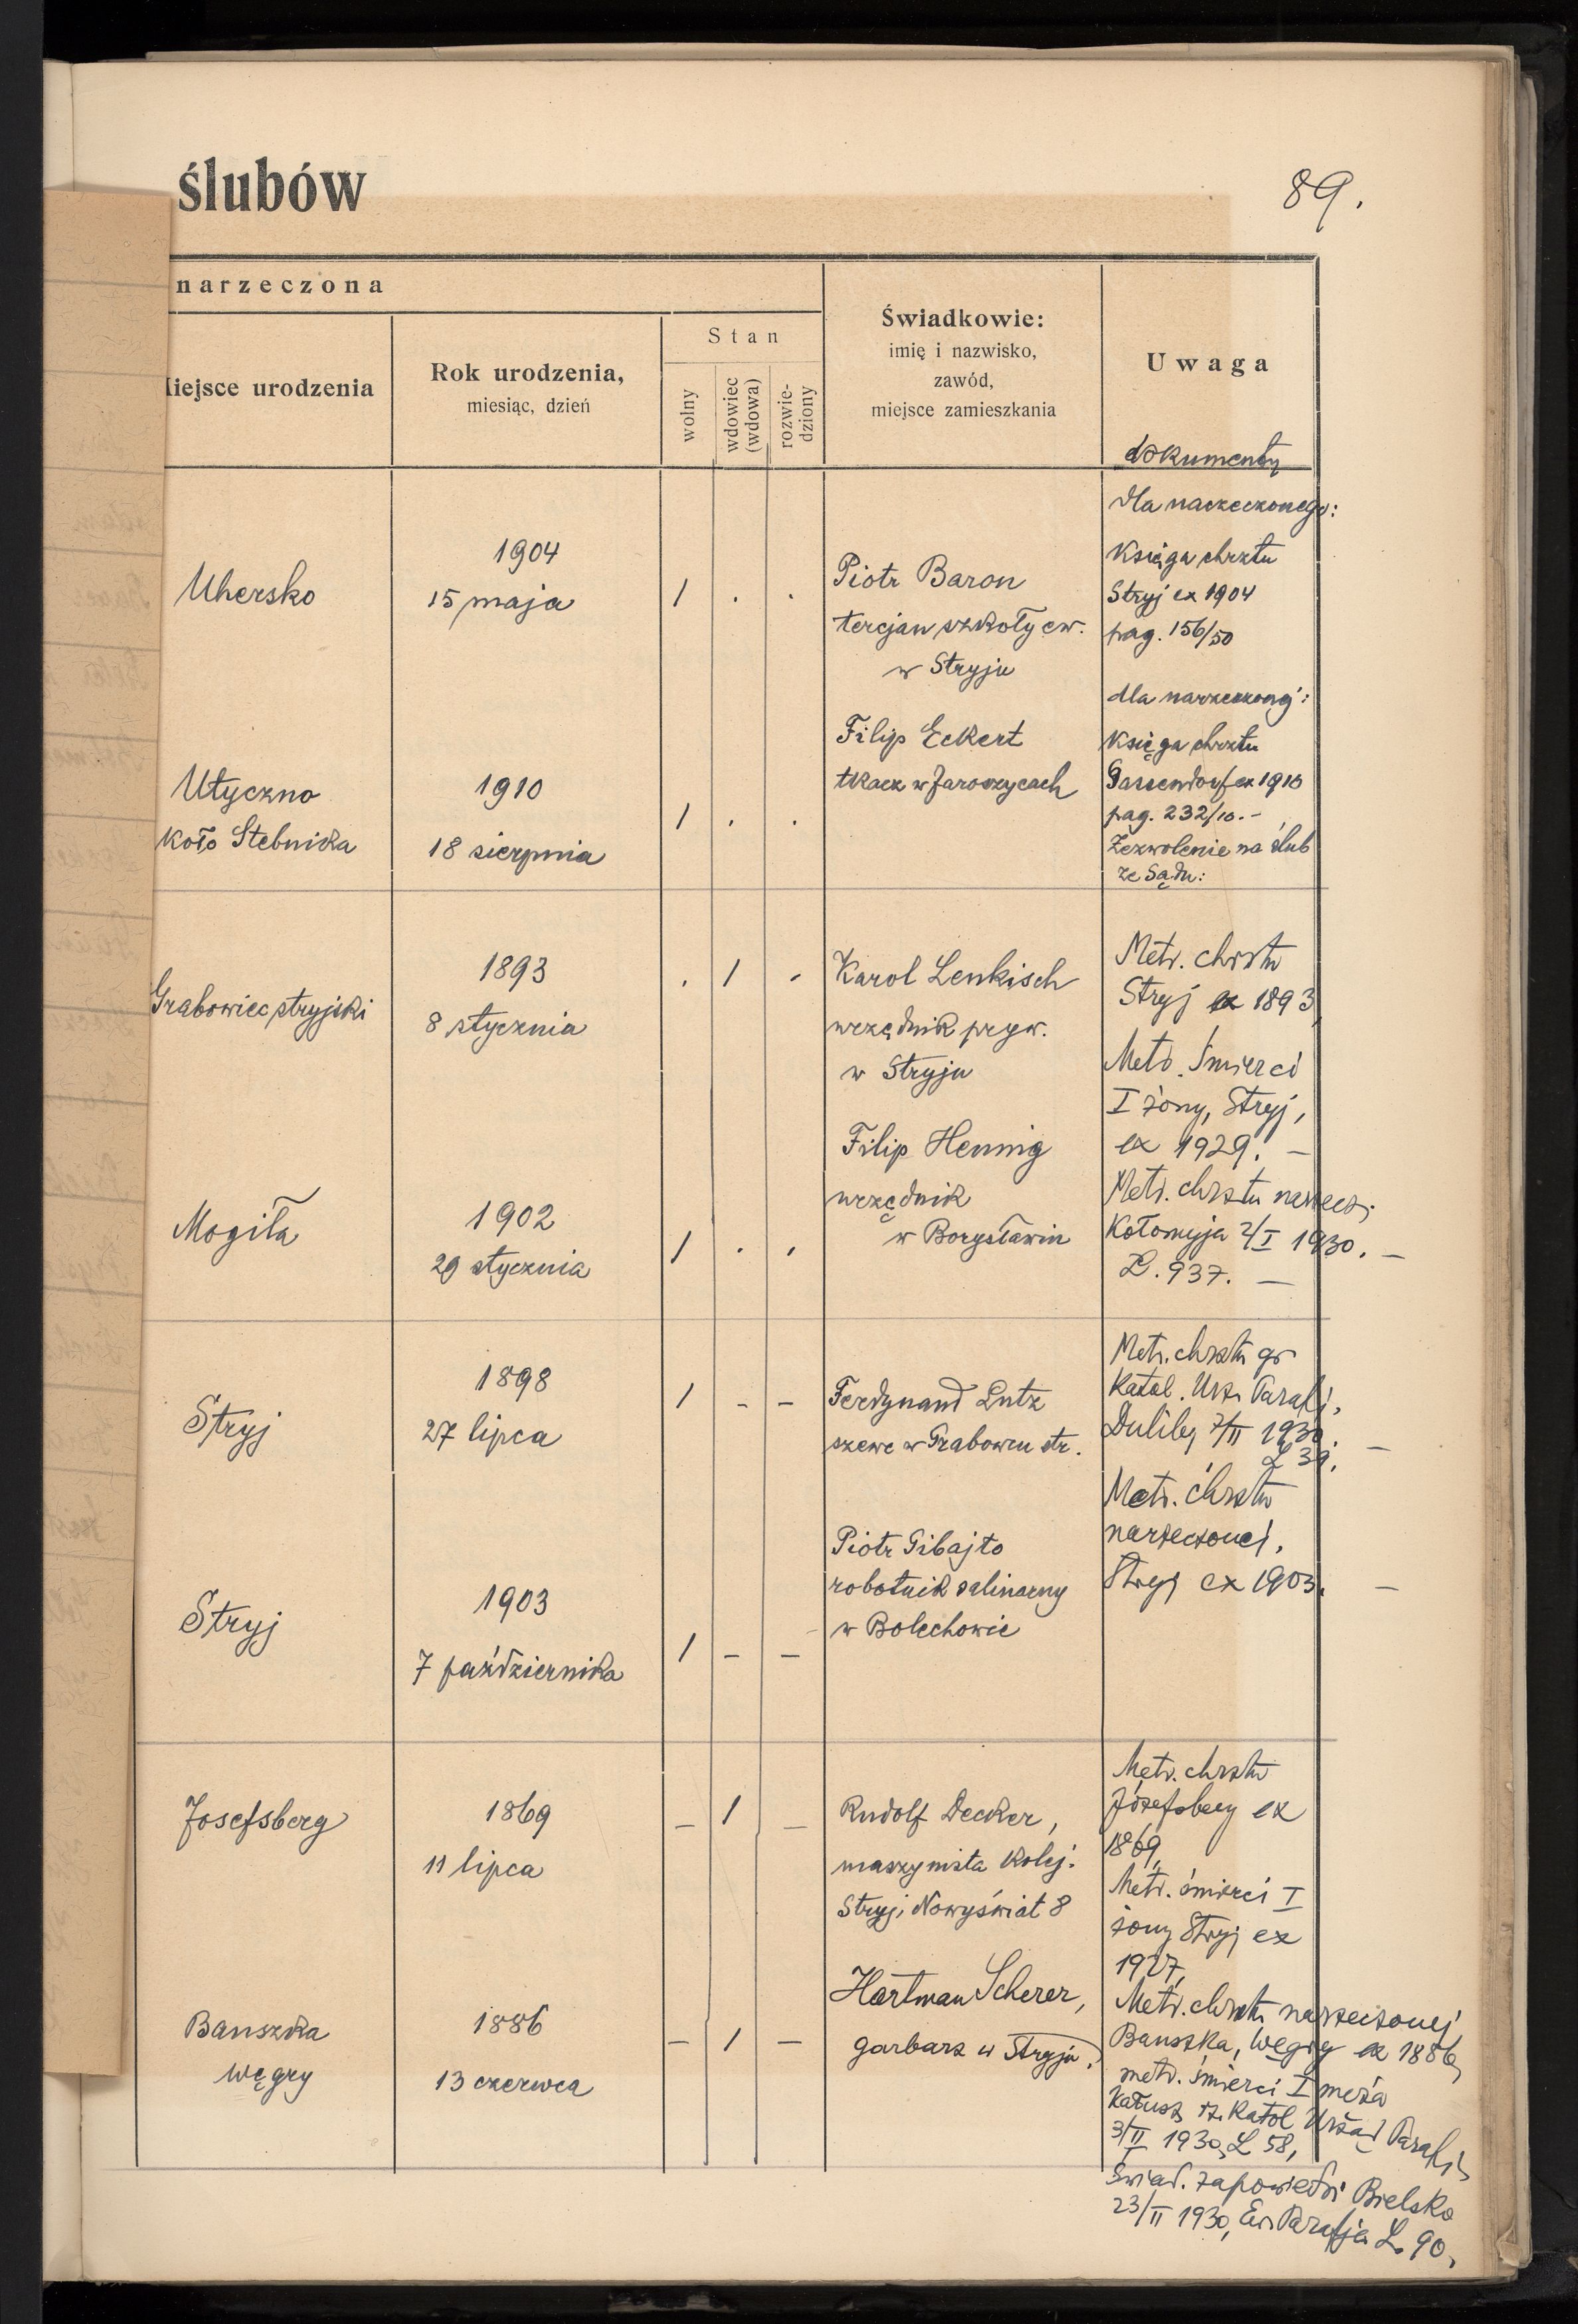 ślubów
89.
narzeczona
iejsce urodzenia
Rok urodzenia,
miesiąc, dzień
Stan
wolny
wdowiec
(wdowa)
rozwie-
dziony
Świadkowie:
imię i nazwisko,
zawód,
miejsce zamieszkania
Uwaga
dokumenty
Uhersko
1904
15 maja
1 . .
Piotr Baron
tercjan szkoły ew.
w Stryju
dla narzeczonego:
Księga chrztu
Stryj ex 1904
pag. 156/50
Utyczno
koło Stebnika
1910
18 sierpnia
1 . .
Filip Eckert
tkacz w Jaroszycach
dla narzeczonej:
Księga chrztu
Gassendorf ex 1910
pag. 232/10.-
Zezwolenie na ślub
ze Sądu:
Grabowiec stryjski
1893
8 stycznia
. 1 .
Karol Lenkisch
urzędnik pryw.
w Stryju
Metr. chrztu
Stryj ex 1893
Metr. śmierci
I żony, Stryj,
ex 1929. —
Mogiła
1902
29 stycznia
1 . .
Filip Hennig
urzędnik
w Borysławiu
Metr. chrztu narzecz.
Kołomyja 2/I 1930. —
L. 937. —
Stryj
1898
27 lipca
1 - -
Ferdynand Lutz
szewc w Grabowcu str.
Metr. chrztu gr
katol. Urz. Parafj.
Duliby 7/II 1930. —
L 39.
Stryj
1903
7 października
1 - -
Piotr Gibajto
robotnik salinarny
w Bolechowie
Metr. chrztu
narzeczonej.
Stryj ex 1903. —
Josefsberg
1869
11 lipca
- 1 -
Rudolf Decker,
maszynista kolej.
Stryj, Nowyświat 8
Metr. chrztu
Józefsberg ex
1869,
Metr. śmierci I
żony Stryj ex
1927,
Banszka
węgry
1886
13 czerwca
- 1 -
Hartman Scherer,
garbarz w Stryju.
Metr. chrztu narzeczonej
Banszka, Węgry ex 1886,
metr. śmierci I męża
Kałusz rz. katol Urząd Parafj.
3/II 1930, L 58,
Świad. zapowiedzi Bielsko
23/II 1930, Ew. Parafja L. 90,